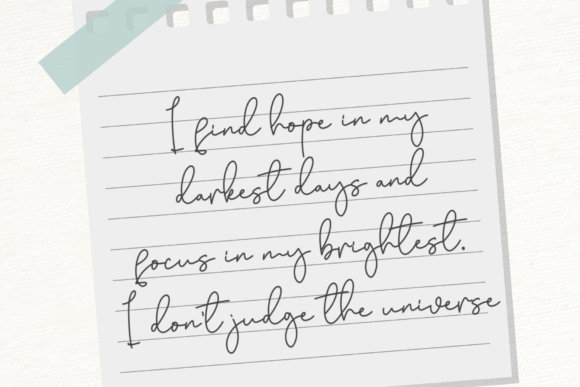 I find hope in my
darkest days and
focus in my brightest.
I don't judge the universe